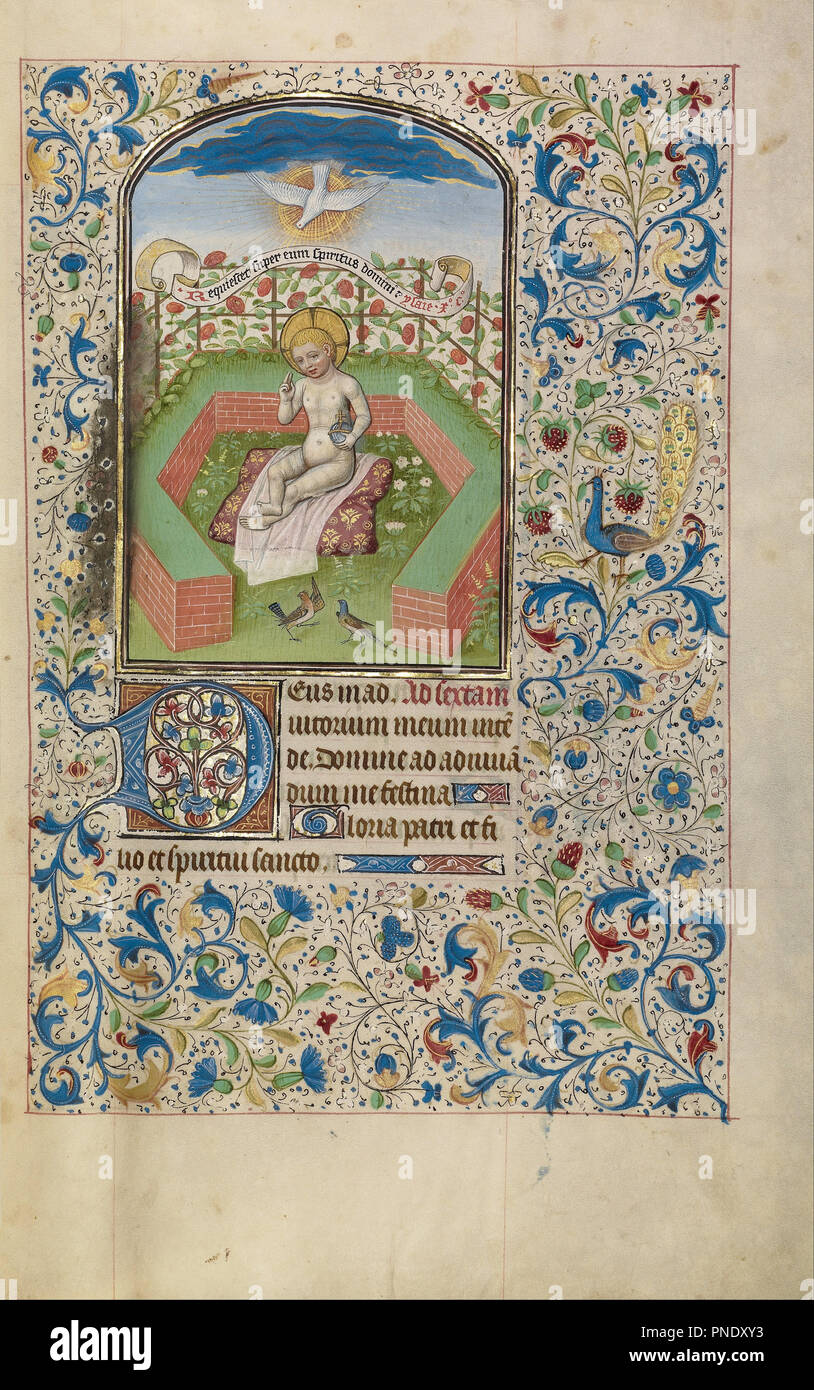 Requiescet super eum spiritus domini : ysaie · xiº c
Eus in ad. Ad sextam
iutorium meum intē
de. Domine ad adiuuā
dum me festina
Gloria patri et fi
lio et spiritui sancto.
alamy
Image ID: PNDXY3
www.alamy.com